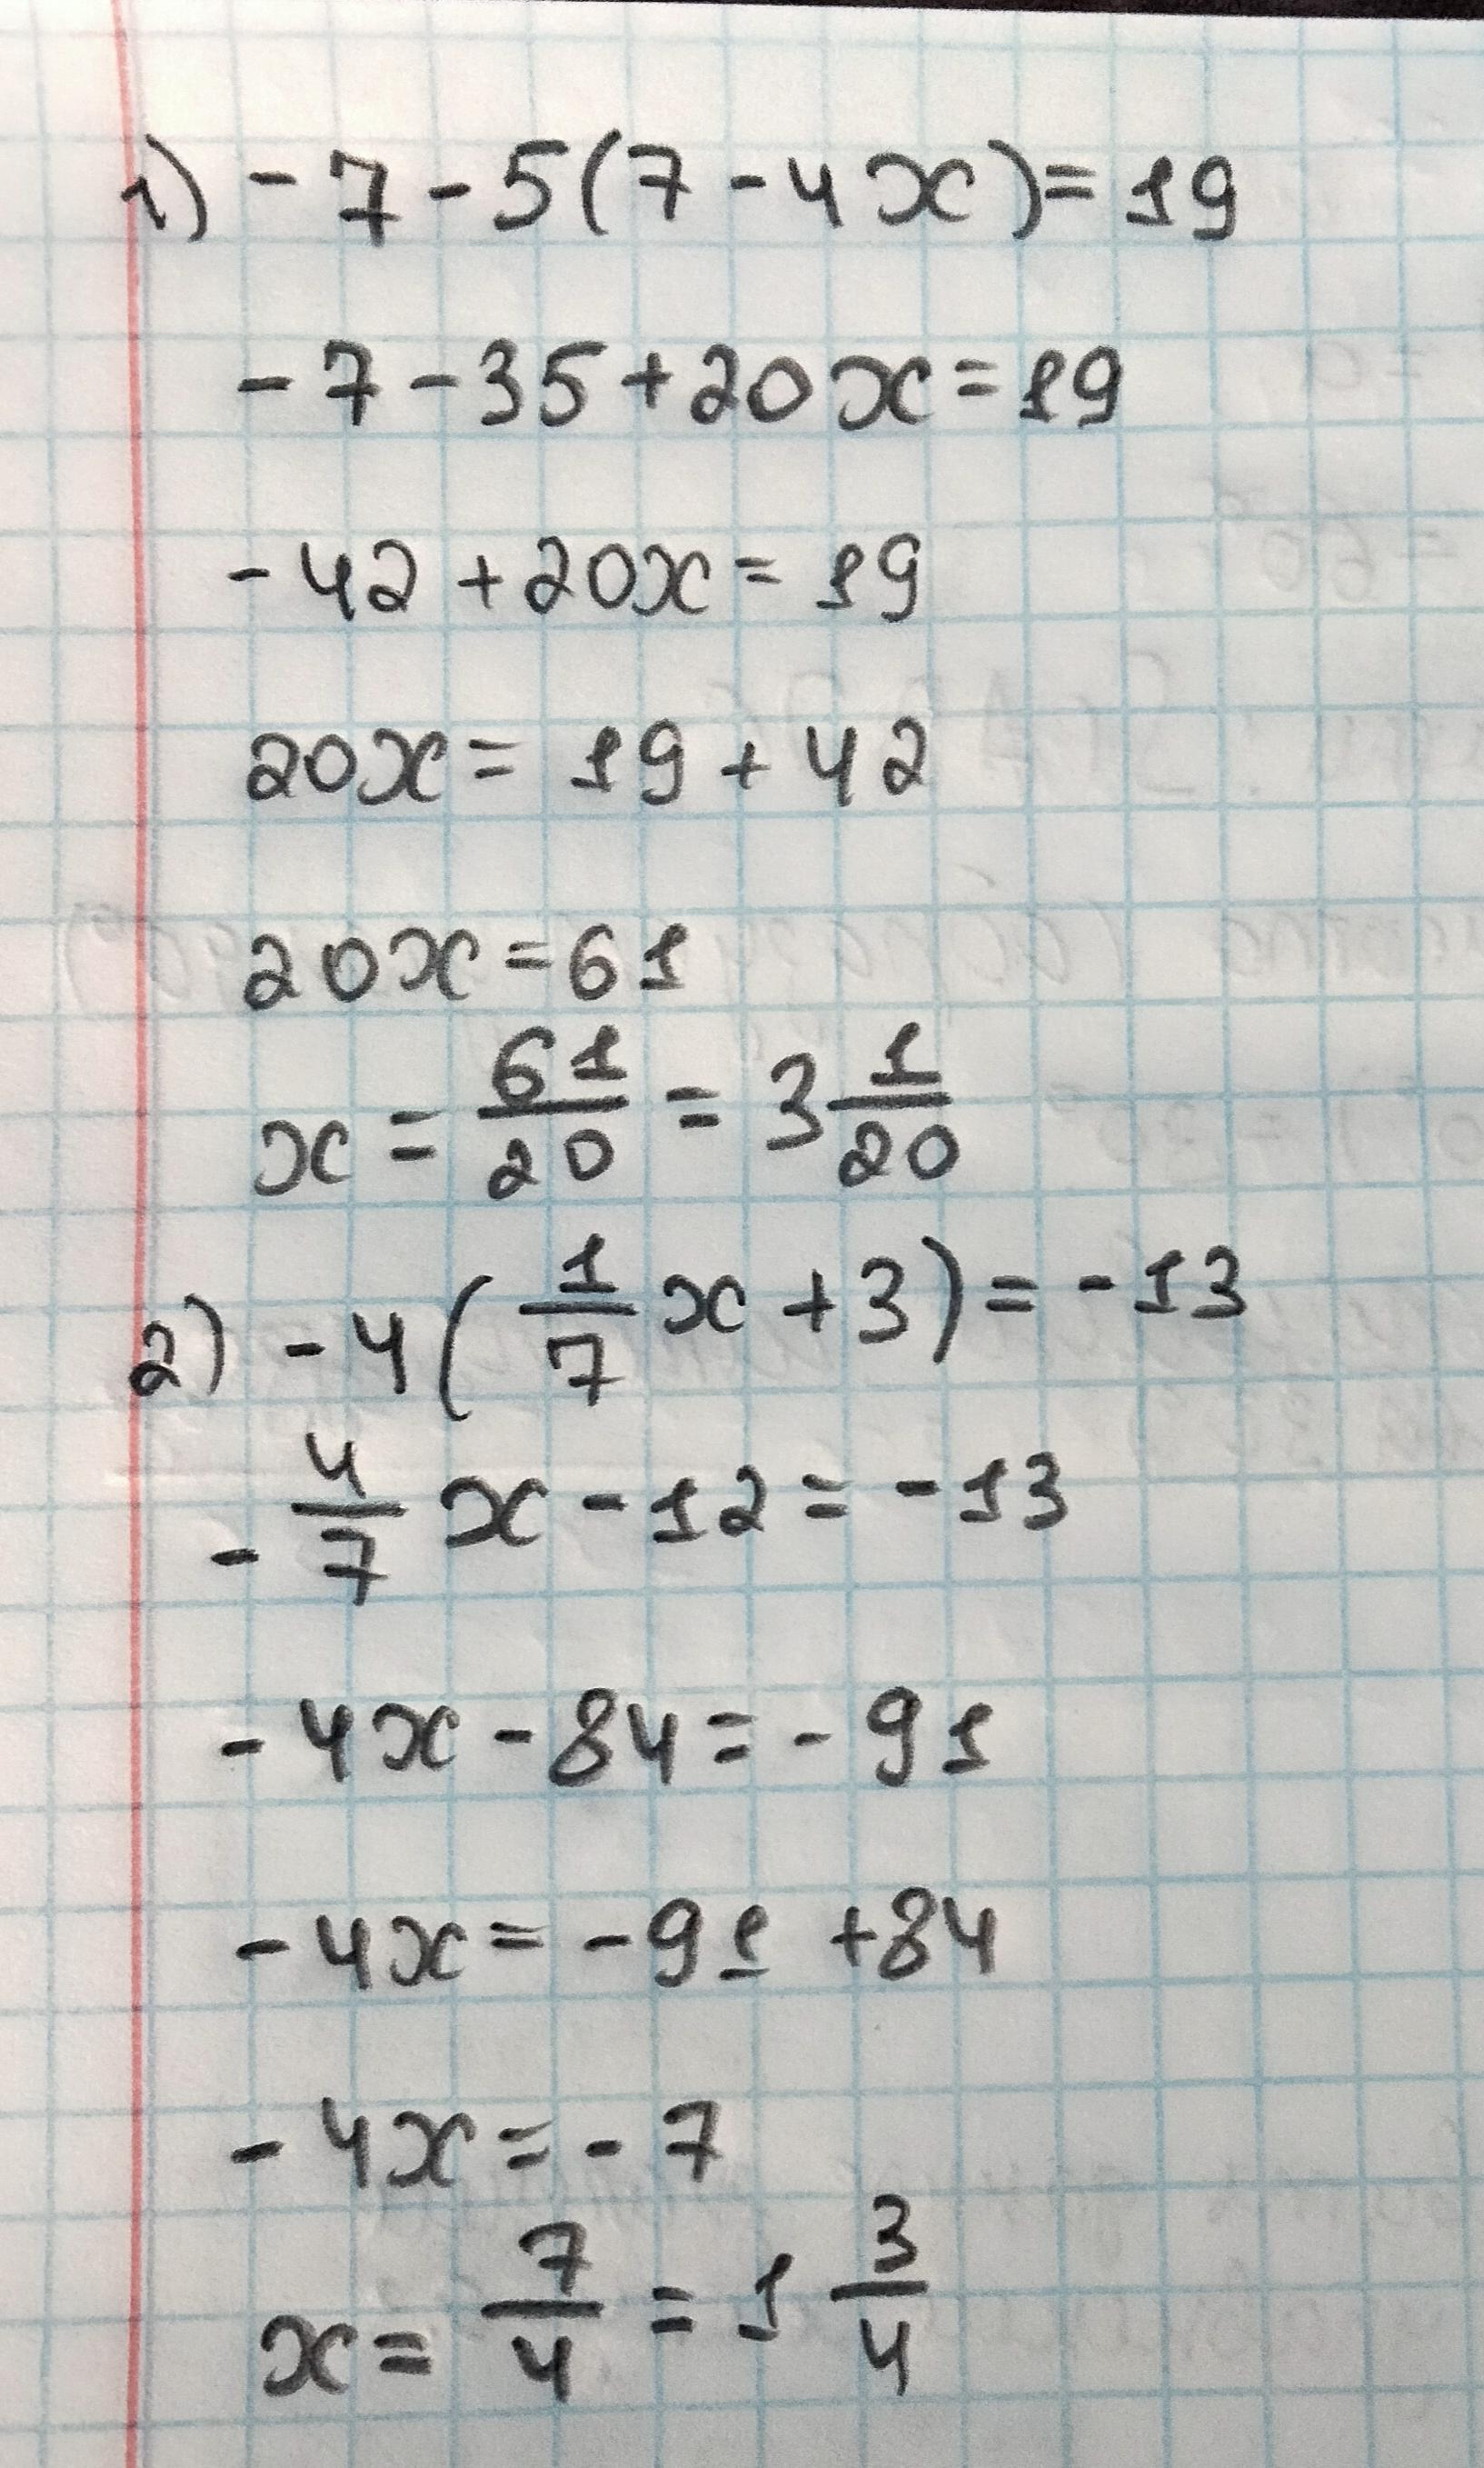 1) -7-5(7-4x)=19
-7-35+20x=19
-42+20x=19
20x=19+42
20x=61
x=61/20=3 1/20
2) -4(1/7x+3)=-13
-4/7x-12=-13
-4x-84=-91
-4x=-91+84
-4x=-7
x=7/4=1 3/4